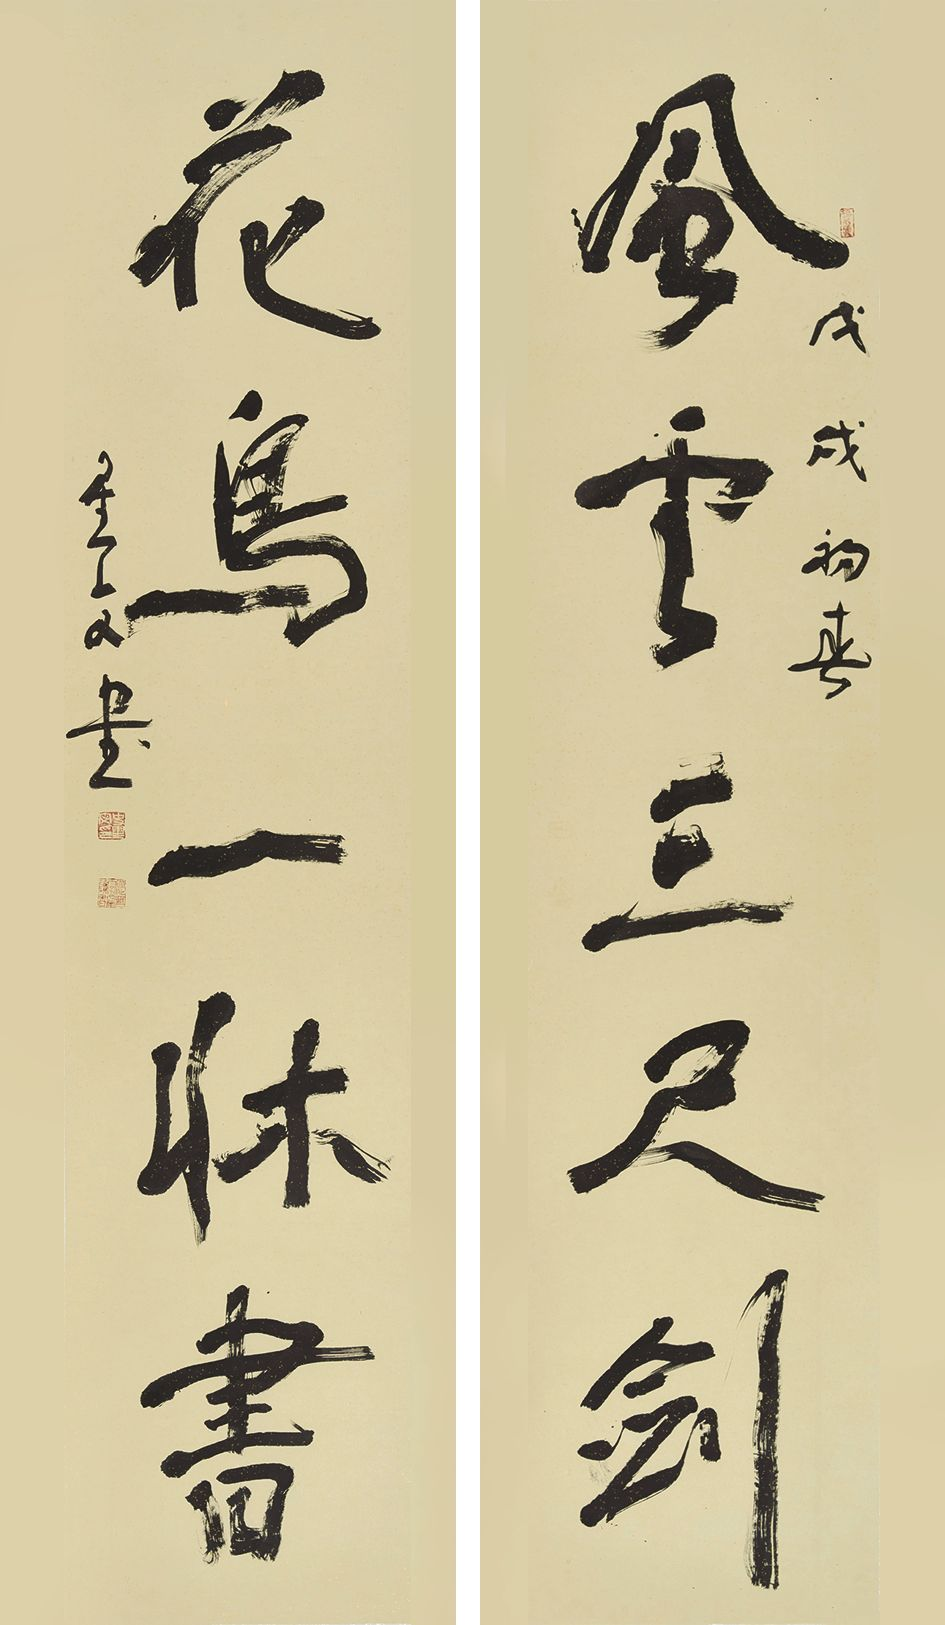 戊戌初春
風雲三尺劍
花鳥一牀書
書